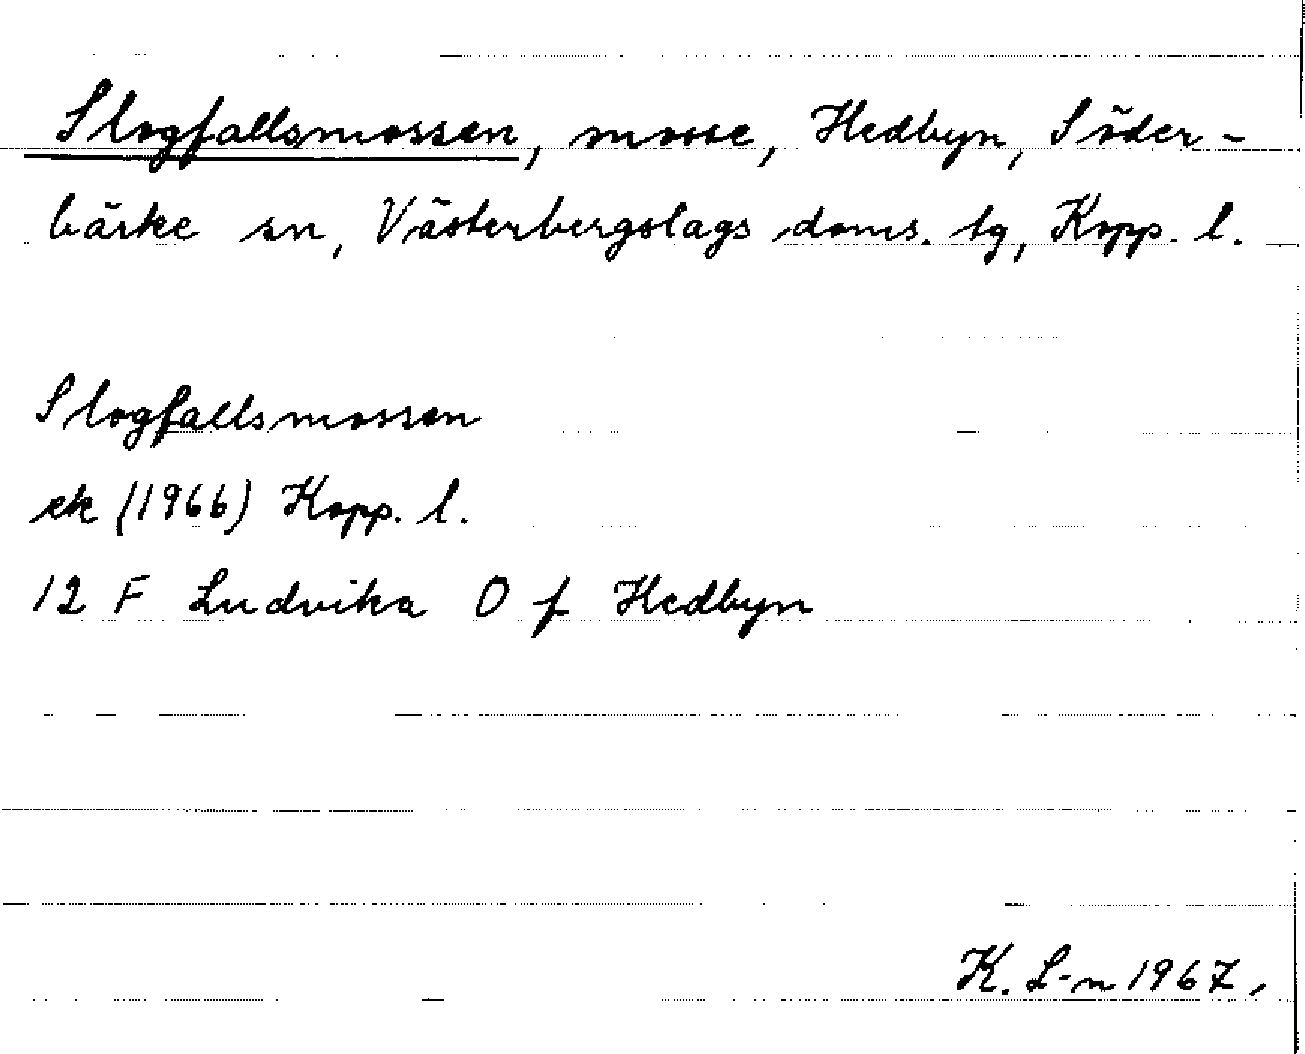 Slogfallsmossen, mosse, Hedbyn, Söder-
bärke sn, Västerbergslags doms. tg, Kopp. l.
Slogfallsmossen
ek (1966) Kopp. l.
12 F Ludvika 0 f Hedbyn
K. L-n 1967.